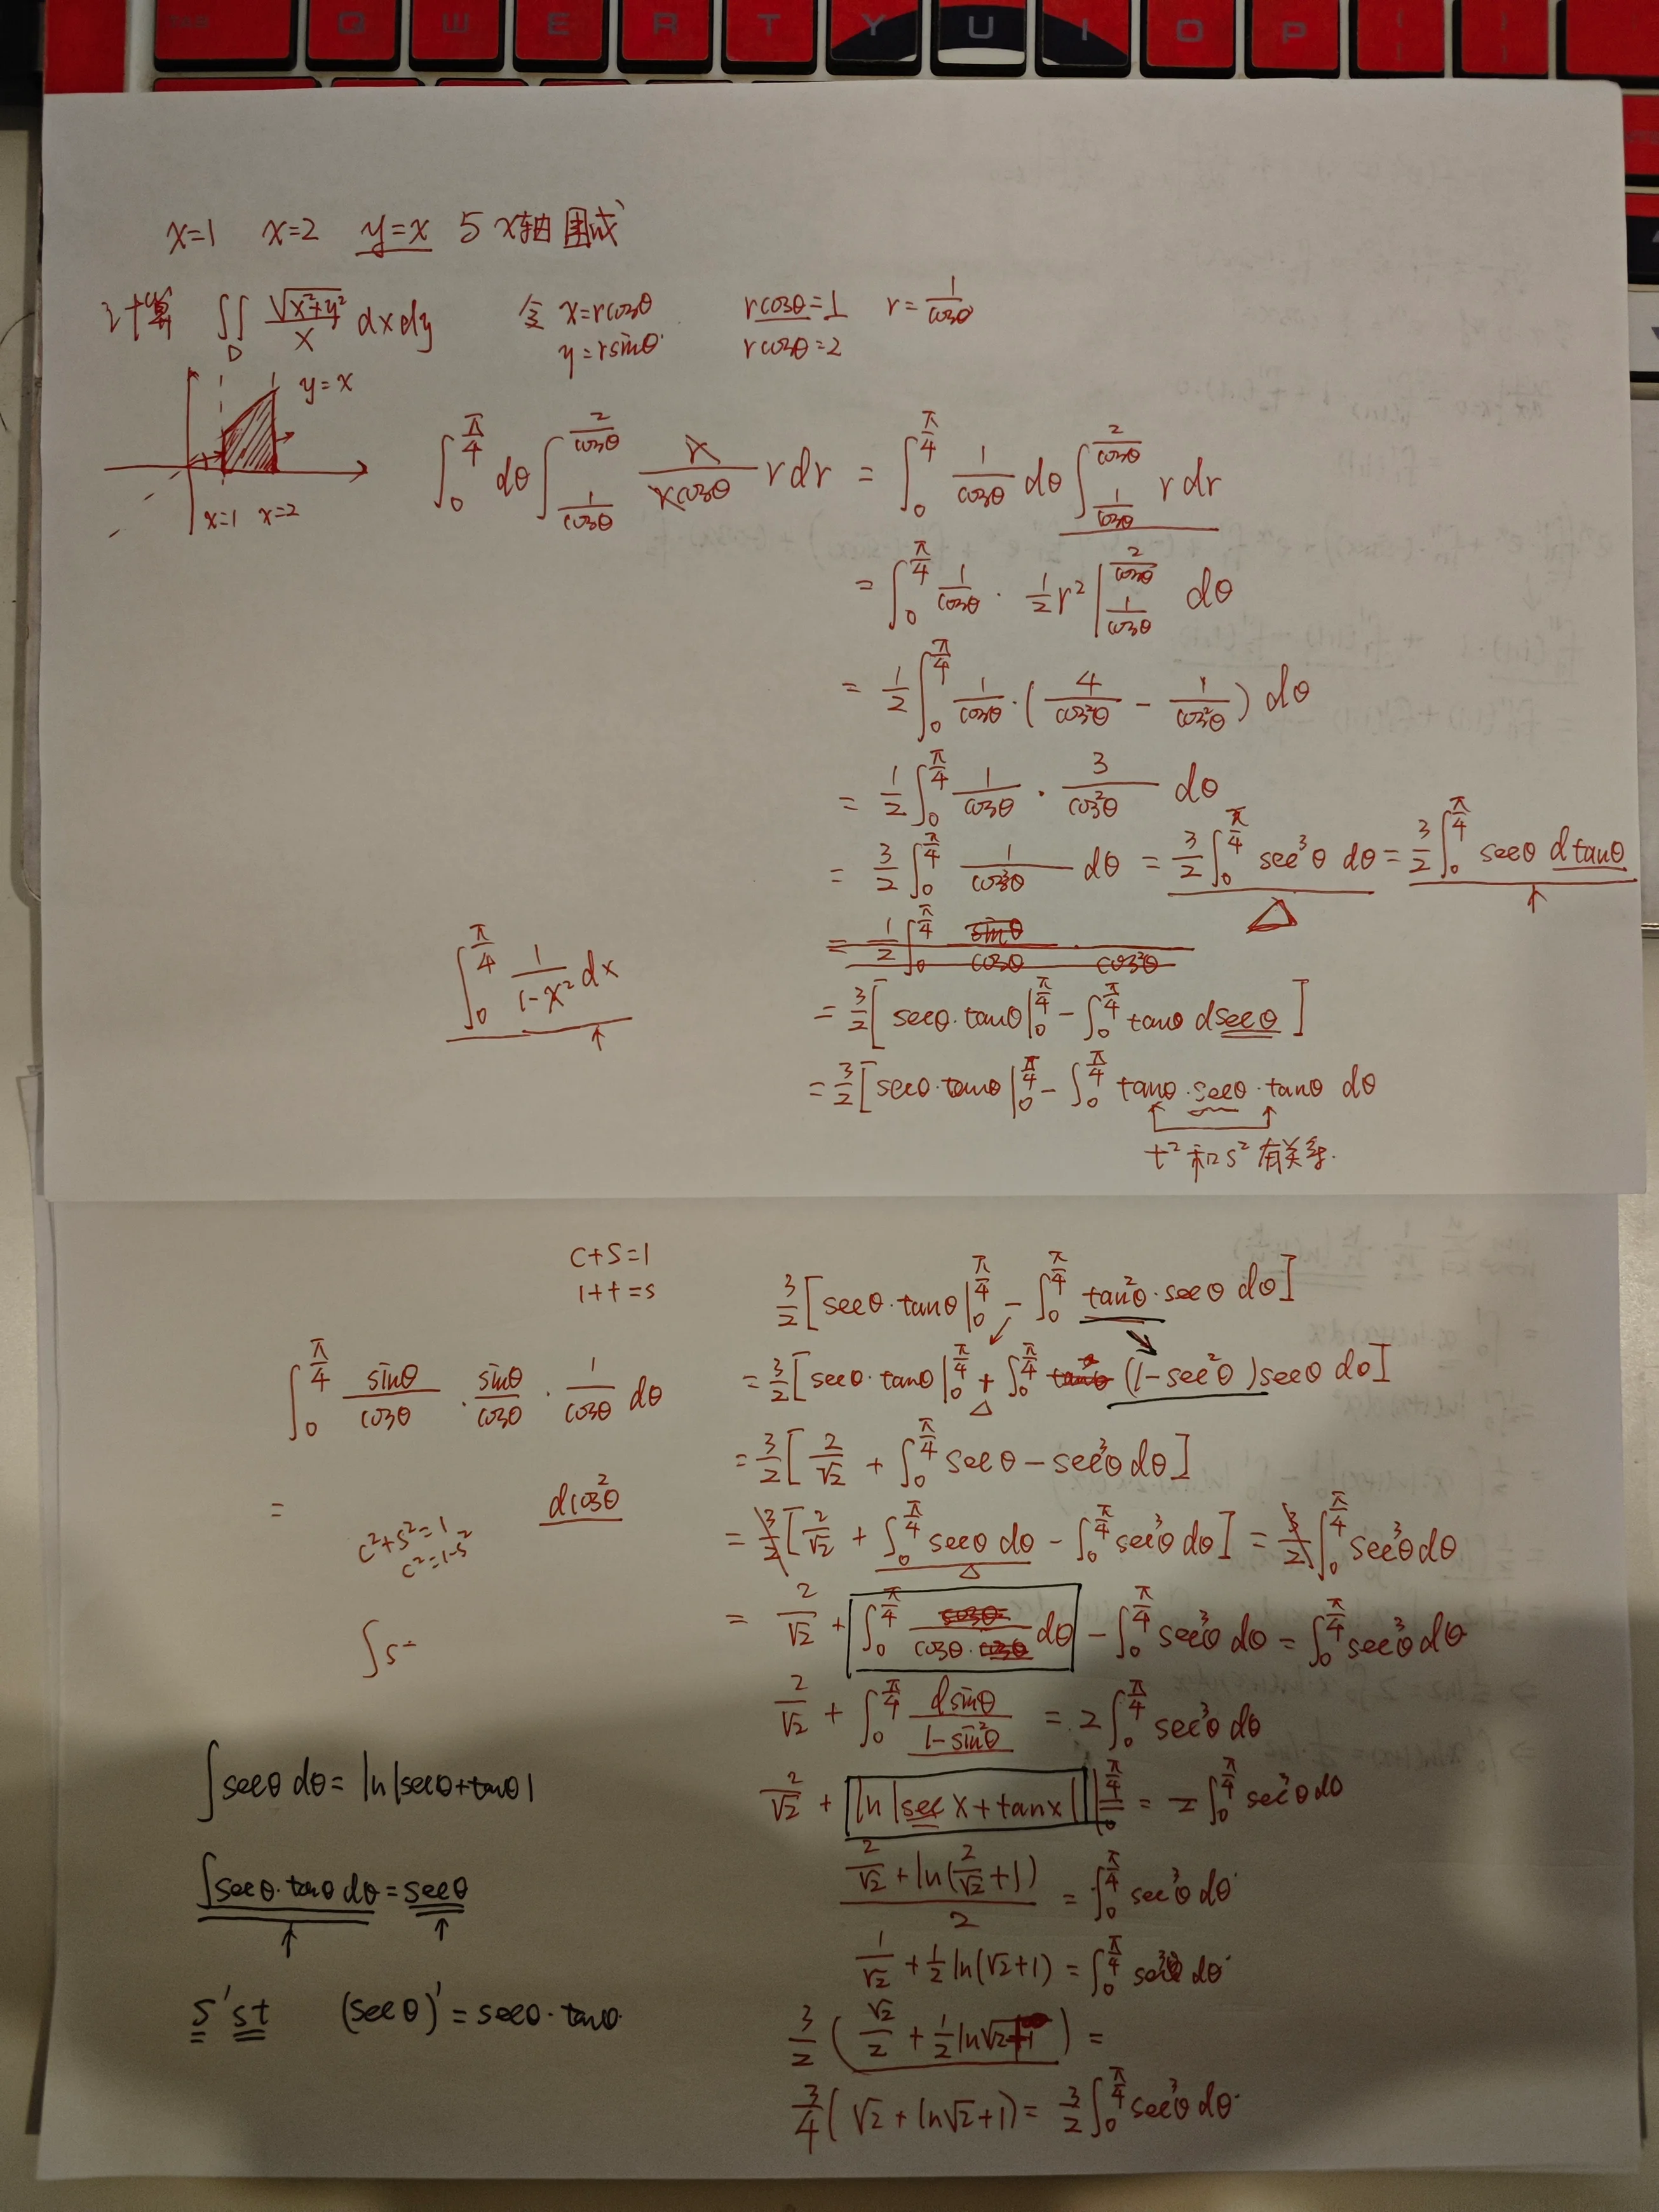 TAB Q W E R T Y U I O P
x=1 x=2 y=x 5 x轴围成
计算 ∬_D √(x²+y²)/x dxdy 令 x=rcosθ rcosθ=1 r=1/cosθ
y=rsinθ rcosθ=2
y=x
x=1 x=2
∫_0^{π/4} dθ ∫_{1/cosθ}^{2/cosθ} r/(rcosθ) r dr = ∫_0^{π/4} 1/cosθ dθ ∫_{1/cosθ}^{2/cosθ} r dr
= ∫_0^{π/4} 1/cosθ · 1/2 r² |_{1/cosθ}^{2/cosθ} dθ
= 1/2 ∫_0^{π/4} 1/cosθ · (4/cos²θ − 1/cos²θ) dθ
= 1/2 ∫_0^{π/4} 1/cosθ · 3/cos²θ dθ
= 3/2 ∫_0^{π/4} 1/cos³θ dθ = 3/2 ∫_0^{π/4} sec³θ dθ = 3/2 ∫_0^{π/4} secθ dtanθ
△
= 1/2 ∫_0^{π/4} sinθ/cosθ cos²θ
∫_0^{π/4} 1/(1-x²) dx
= 3/2 [secθ·tanθ |_0^{π/4} − ∫_0^{π/4} tanθ dsecθ]
= 3/2 [secθ·tanθ |_0^{π/4} − ∫_0^{π/4} tanθ·secθ·tanθ dθ
t²和s²有关系.
c+s=1
1+t=s
3/2 [secθ·tanθ |_0^{π/4} − ∫_0^{π/4} tan²θ·secθ dθ]
∫_0^{π/4} sinθ/cosθ · sinθ/cosθ · 1/cosθ dθ
= 3/2 [secθ·tanθ |_0^{π/4} + ∫_0^{π/4} (1−sec²θ)secθ dθ]
△
= 3/2 [2/√2 + ∫_0^{π/4} secθ−sec³θ dθ]
= dcos²θ
c²+s²=1
c²=1-s²
= 3/2 [2/√2 + ∫_0^{π/4} secθ dθ − ∫_0^{π/4} sec³θ dθ] = 3/2 ∫_0^{π/4} sec³θ dθ
△
= 2/√2 + ∫_0^{π/4} cosθ/(cosθ·cosθ) dθ − ∫_0^{π/4} sec³θ dθ = ∫_0^{π/4} sec³θ dθ
∫s-
2/√2 + ∫_0^{π/4} dsinθ/(1−sin²θ) = 2∫_0^{π/4} sec³θ dθ
∫secθ dθ = ln|secθ+tanθ|
2/√2 + ln|sec x+tanx| |_0^{π/4} = 2∫_0^{π/4} sec³θ dθ
(2/√2 + ln(2/√2+1))/2 = ∫_0^{π/4} sec³θ dθ
∫secθ·tanθ dθ = secθ
1/√2 + 1/2 ln(√2+1) = ∫_0^{π/4} sec³θ dθ
s'st (secθ)' = secθ·tanθ
3/2 (√2/2 + 1/2 ln√2+1) =
3/4 (√2 + ln√2+1) = 3/2 ∫_0^{π/4} sec³θ dθ